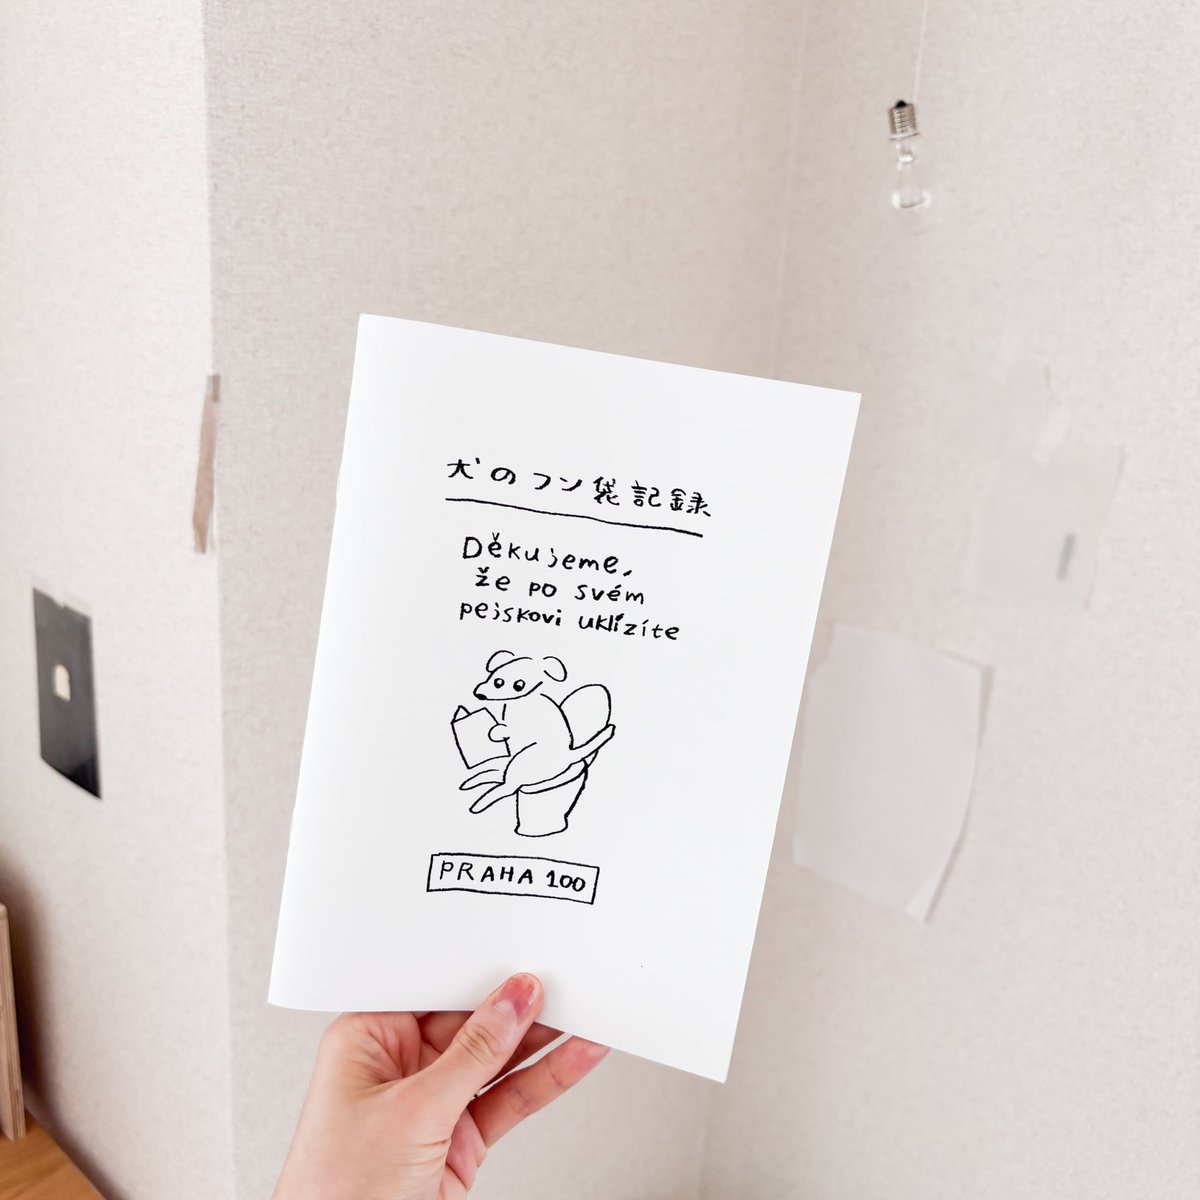 犬のフン袋記録
Děkujeme,
že po svém
pejskovi uklízíte
PRAHA 100